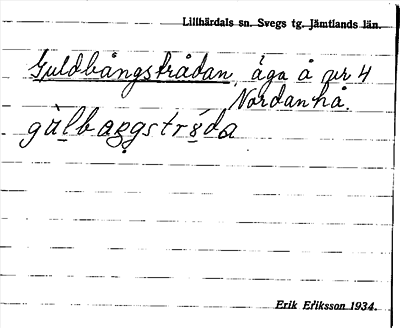 Lillhärdals sn. Svegs tg. Jämtlands län.
Guldbångstrådan, åga å nr 4
Nordanhå.
Erik Eriksson 1934.